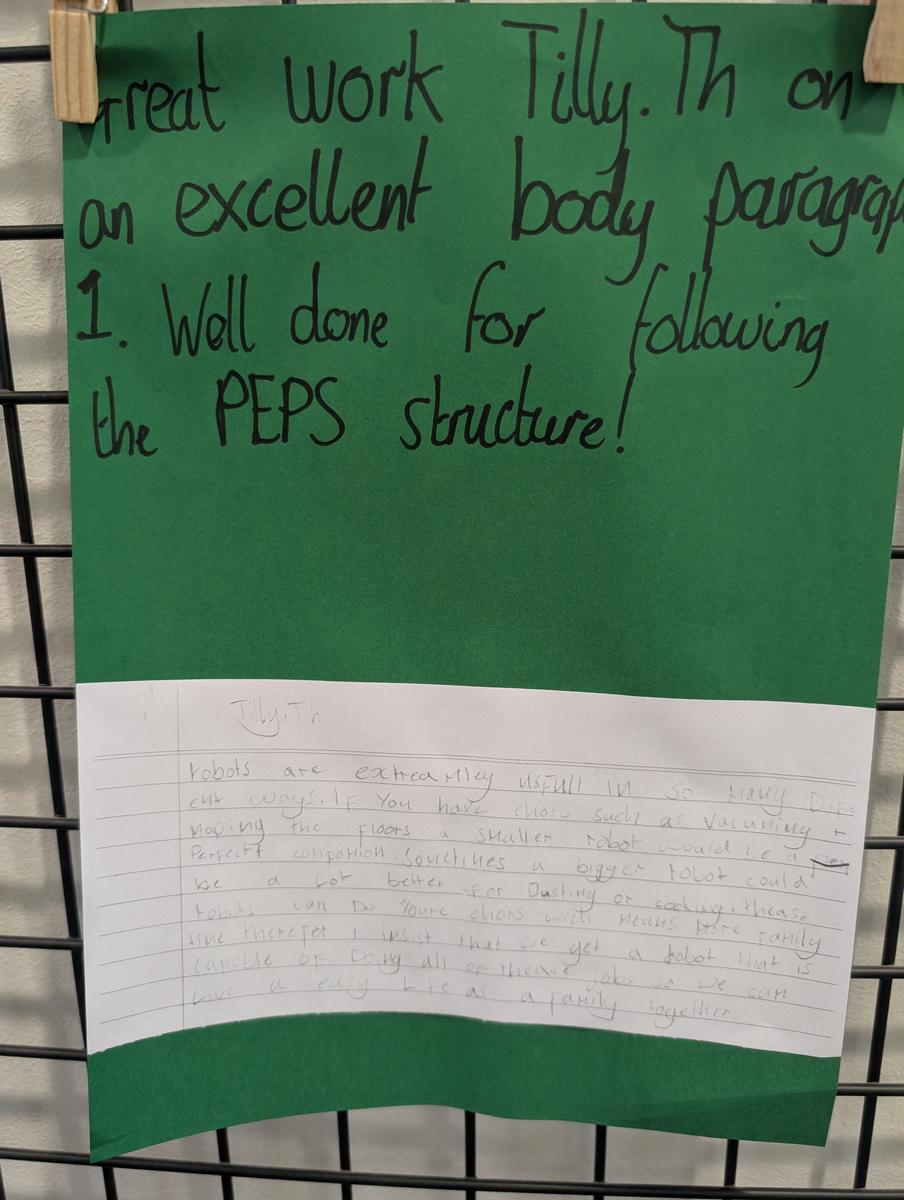 Great work Tilly.Th on
an excellent body paragrap
1. Well done for following
the PEPS structure!
Tilly.Th
robots are extreamley usfull in so many Diffr
ent ways. If You have chors such as Vacuming +
Moping the floors a smaller robot would be a
Perfect companion. Somtimes a bigger robot could
be a Lot better for Dusting or cooking. thease
robots can Do Youre chors wich means More Family
time therefor I insist that we get a robot that is
capeble of Doing all of thease jobs so we can
Live a easy Life as a family together